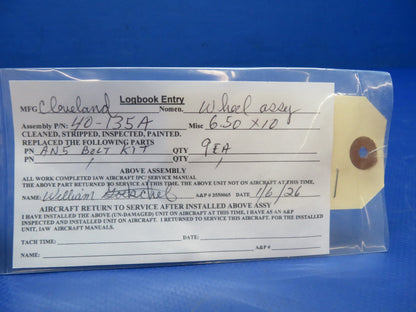 Logbook Entry
MFG Cleveland Nomen. Wheel assy
Assembly P/N: 40-135A Misc 6.50 x 10
CLEANED, STRIPPED, INSPECTED, PAINTED.
REPLACED THE FOLLOWING PARTS
PN AN5 BOLT KIT QTY 9EA
PN QTY
ABOVE ASSEMBLY
ALL WORK COMPLETED IAW AIRCRAFT IPC/ SERVICE MANUAL
THE ABOVE PART RETURNED TO SERVICE AT THIS TIME. THE ABOVE UNIT NOT ON AIRCRAFT AT THIS TIME.
NAME: William A&P # 2550065 DATE 1/6/26
AIRCRAFT RETURN TO SERVICE AFTER INSTALLED ABOVE ASSY
I HAVE INSTALLED THE ABOVE (UN-DAMAGED) UNIT ON AIRCRAFT AT THIS TIME, I HAVE AS AN A&P
INSPECTED AND INSTALLED UNIT ON AIRCRAFT. I RETURNED TO SERVICE THIS AIRCRAFT. FOR THE INSTALLED
UNIT, IAW AIRCRAFT MANUALS.
TACH TIME: DATE:
NAME: A&P #